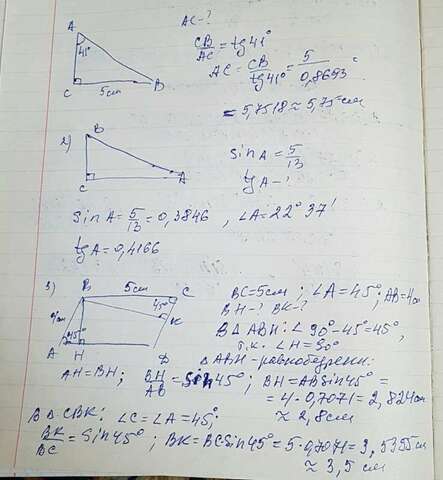 AC-?
A
41°
C 5см B
CB/AC = tg41°
AC = CB/tg41° = 5/0,8693
= 5,7518 ≈ 5,75 см
2) B
C A
sin A = 5/13
tg A - ?
sin A = 5/13 = 0,3846 , ∠A = 22° 37'
tg A = 0,4166
3) B 5см C
4см 45° K
45°
A H D
BC = 5см ; ∠A = 45° ; AB = 4см
BH - ? BK - ?
В Δ ABH : ∠ 90° - 45° = 45°,
т.к. ∠H = 90°
Δ ABH - равнобедренн:
AH = BH ; BH/AB = sin 45° ; BH = AB sin 45° =
= 4 · 0,7071 = 2,824см
≈ 2,8см
В Δ CBK : ∠C = ∠A = 45° ;
BK/BC = sin 45° ; BK = BC sin 45° = 5 · 0,7071 = 3,5355 см
≈ 3,5 см